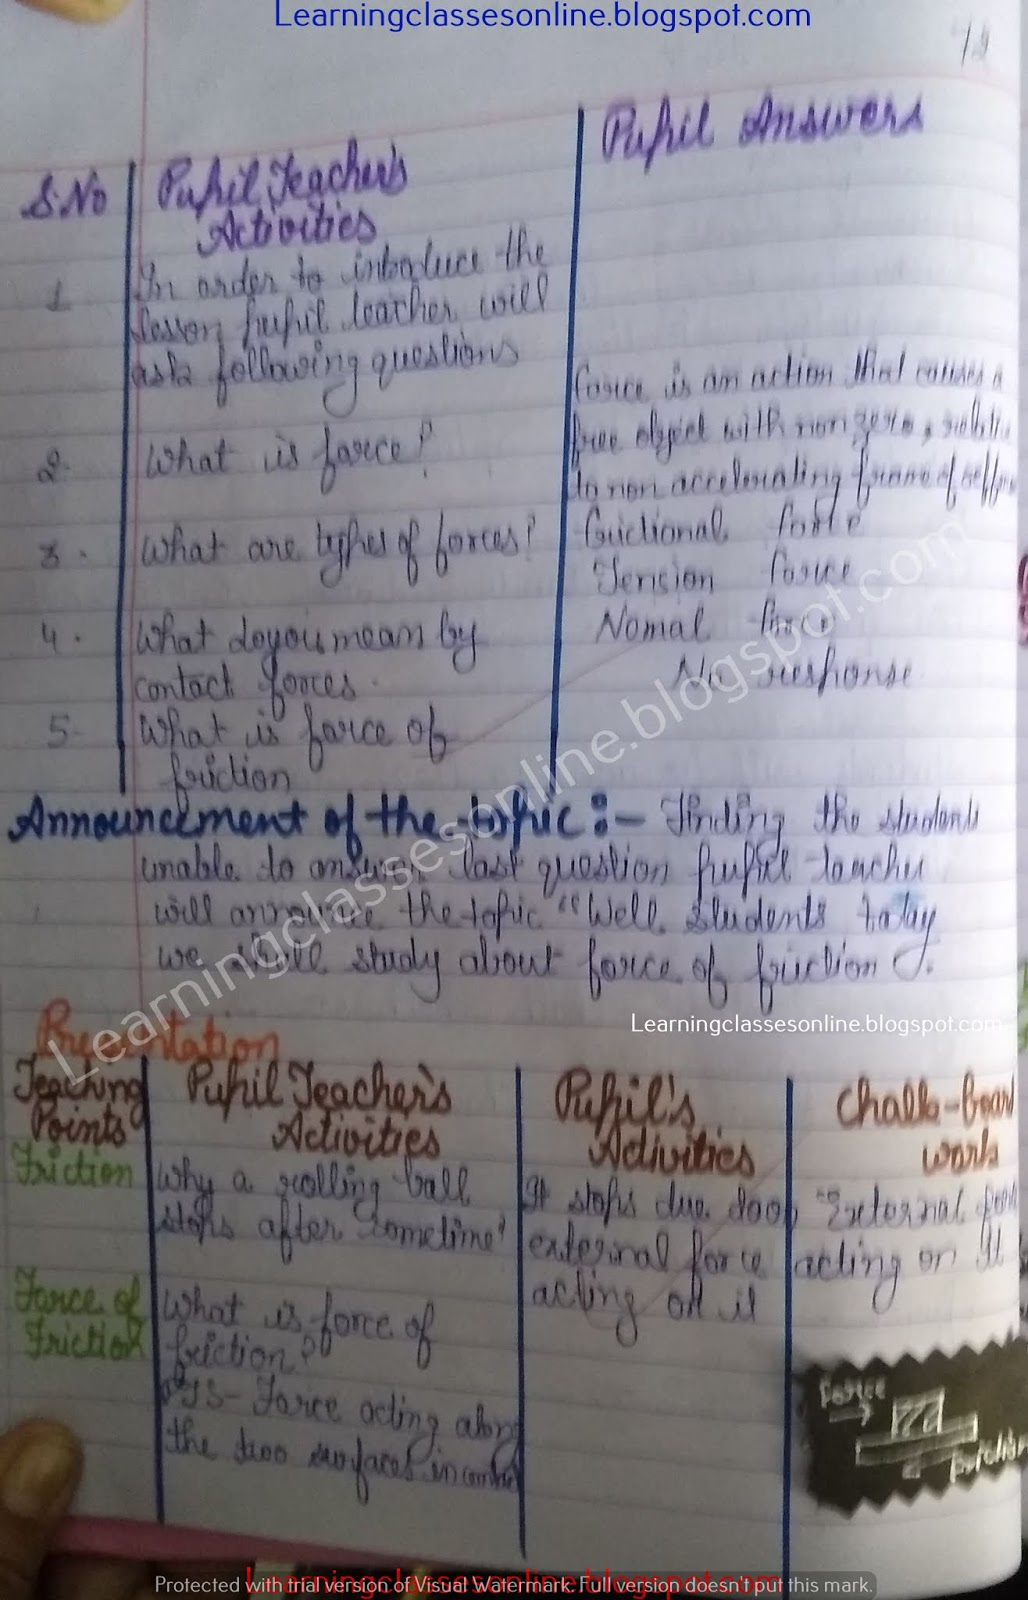 Learningclassesonline.blogspot.com
72
S.No
Pupil Teacher's
Activities
Pupil Answers
1
In order to introduce the
lesson pupil teacher will
ask following questions
2.
What is force?
Force is an action that causes a
free object with non zero, relative
to non accelerating frame of
3.
What are types of forces?
frictional force
Tension force
Nomal force
4.
What do you mean by
contact forces.
No response
5.
What is force of
friction
Announcement of the topic :- Finding the students
unable to answer last question pupil teacher
will announce the topic "Well students today
we shall study about force of friction".
Learningclassesonline.blogspot.com
Learningclassesonline.blogspot.com
Presentation
Teaching
Points
Pupil Teacher's
Activities
Pupil's
Activities
Chalk-board
work
Friction
Why a rolling ball
stops after sometime?
It stops due to
external force
acting on it
"External force
acting on it
Force of
Friction
What is force of
friction?
PTS- Force acting along
the two surfaces in contact
Force
friction
Learningclassesonline.blogspot.com
Protected with trial version of Visual Watermark. Full version doesn't put this mark.